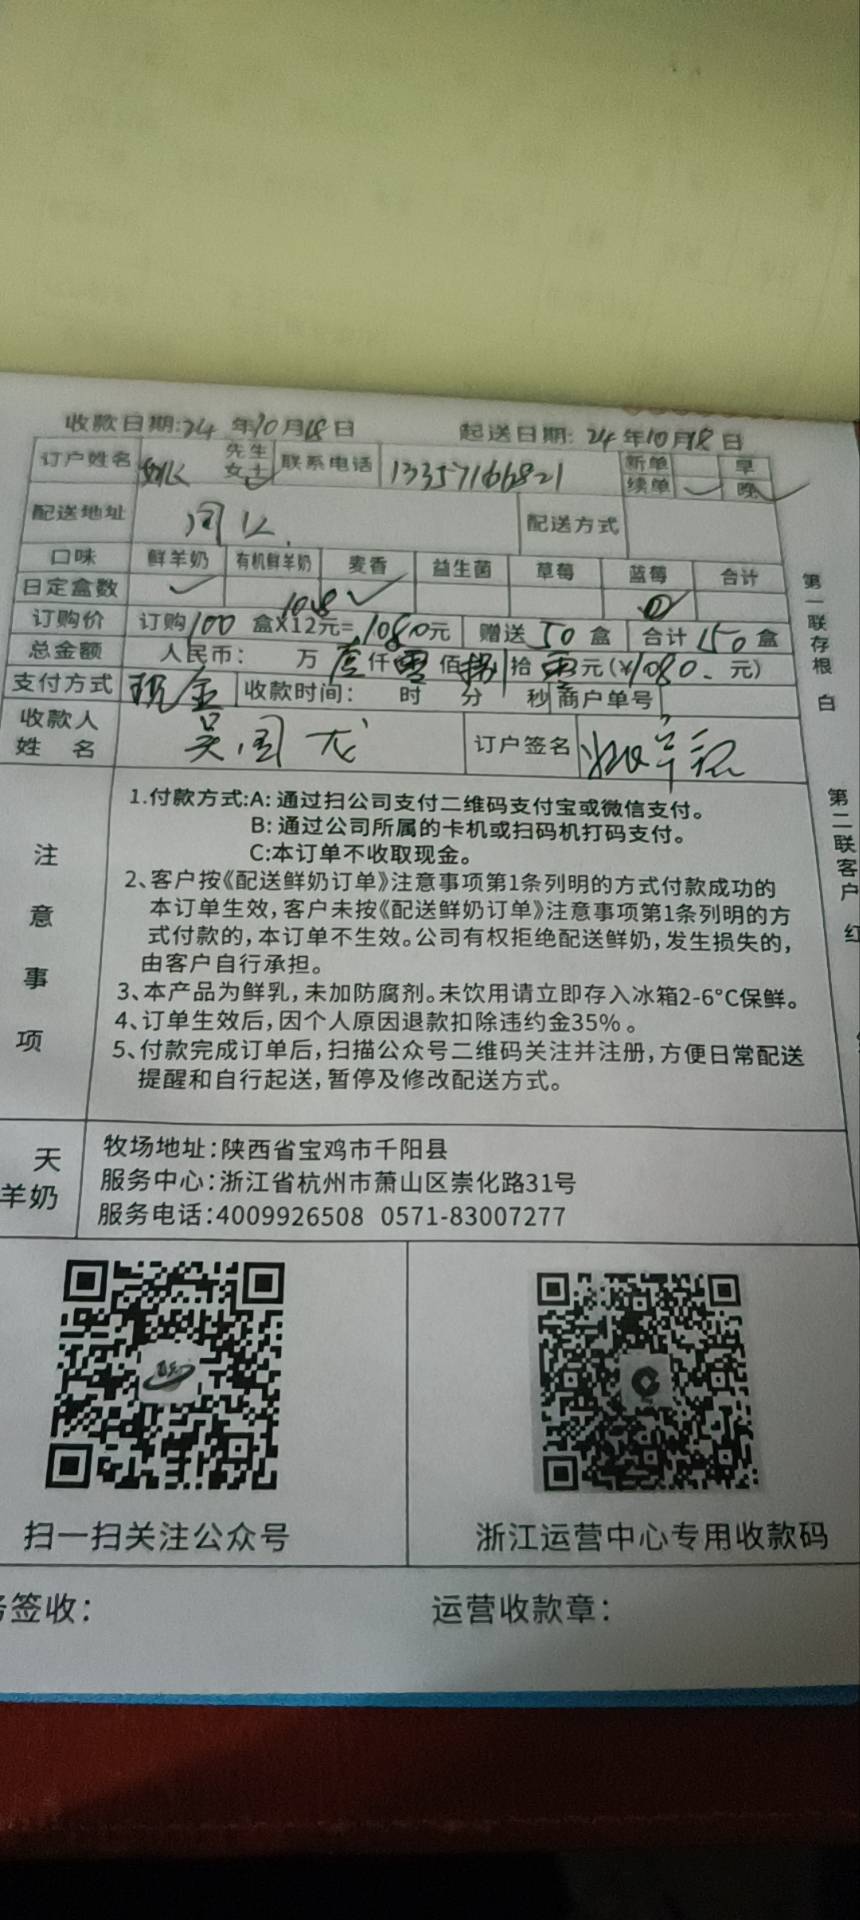 收款日期:24年10月18日 起送日期:24年10月18日
订户姓名 先生 女士 联系电话 13357166821 新单 早
续单 晚
配送地址 配送方式
口味 鲜羊奶 有机鲜羊奶 麦香 益生菌 草莓 蓝莓 合计
日定盒数
订购价 订购100盒X12元=1080元 赠送50盒 合计150盒
总金额 人民币: 万壹仟零佰捌拾零元(¥1080.元)
支付方式 现金 收款时间: 时 分 秒 商户单号
收款人 姓名 吴国龙 订户签名
注意事项
1.付款方式:A:通过扫公司支付二维码支付宝或微信支付。
B:通过公司所属的卡机或扫码机打码支付。
C:本订单不收取现金。
2、客户按《配送鲜奶订单》注意事项第1条列明的方式付款成功的
本订单生效,客户未按《配送鲜奶订单》注意事项第1条列明的方
式付款的,本订单不生效。公司有权拒绝配送鲜奶,发生损失的,
由客户自行承担。
3、本产品为鲜乳,未加防腐剂。未饮用请立即存入冰箱2-6°C保鲜。
4、订单生效后,因个人原因退款扣除违约金35%。
5、付款完成订单后,扫描公众号二维码关注并注册,方便日常配送
提醒和自行起送,暂停及修改配送方式。
第一联存根 白
第二联客户 红
天
羊奶
牧场地址:陕西省宝鸡市千阳县
服务中心:浙江省杭州市萧山区崇化路31号
服务电话:4009926508 0571-83007277
扫一扫关注公众号 浙江运营中心专用收款码
签收: 运营收款章: